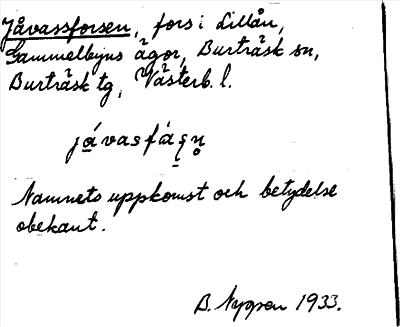 Jåvassforsen, fors i Lillån,
Gammelbyns ägor, Burträsk sn,
Burträsk tg, Västerb. l.
Namnets uppkomst och betydelse
obekant.
B. Nygren 1933.